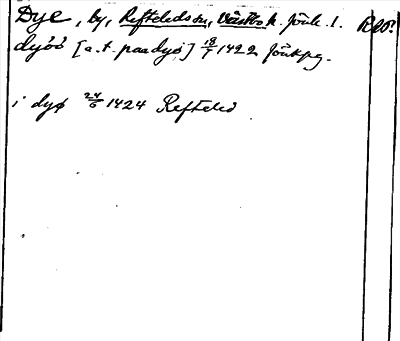 Dye, by, Refteleds sn, Västbo h. Jönk. l.
dyöö [a.t. paa dyö] 18/7 1422 Jönkpg.
i dyø 24/6 1424 Refteled